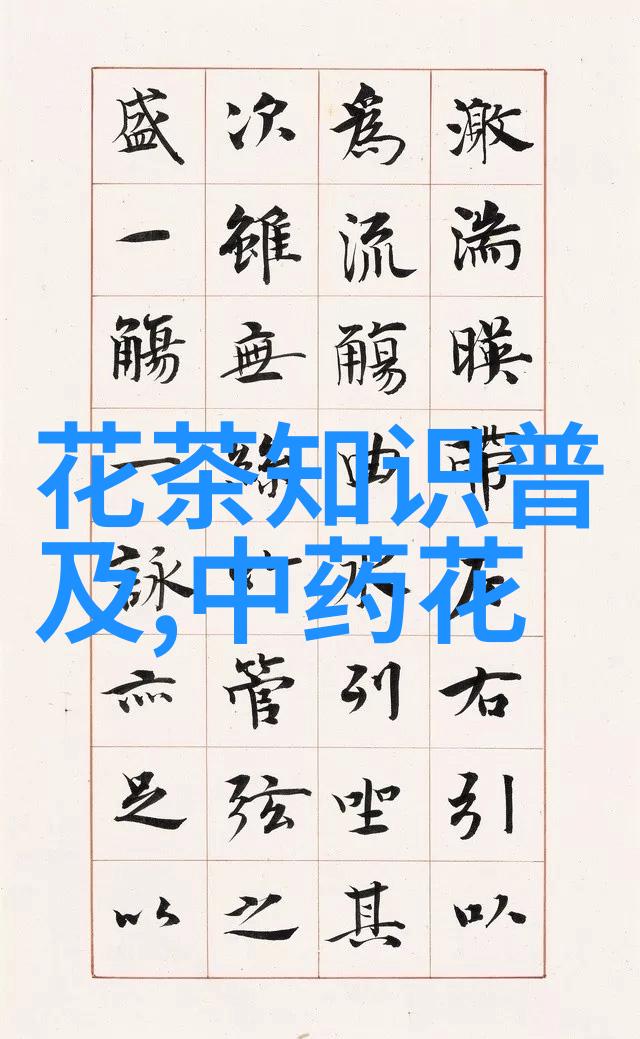 花茶知识普
及,中药花
激湍暎帶左右引以
為流觴曲水列坐其
次雖無絲竹管弦之
盛一觴一詠亦足以